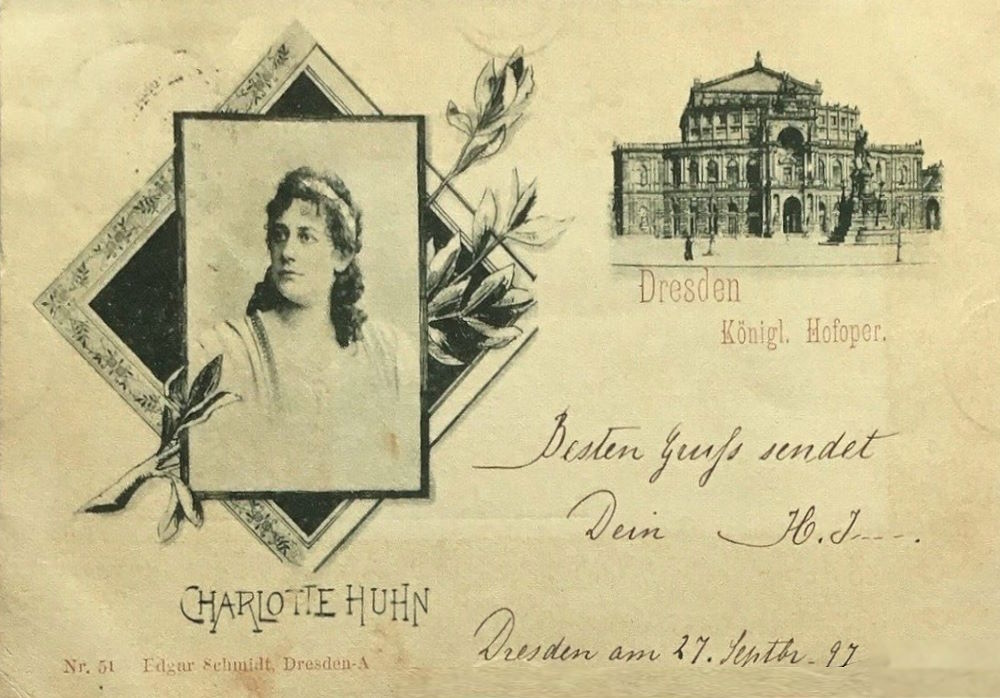 Dresden
Königl. Hofoper.
Besten Gruß sendet
Dein H. J----.
CHARLOTTE HUHN
Dresden am 27. Septbr. 97
Nr. 51 Edgar Schmidt, Dresden-A